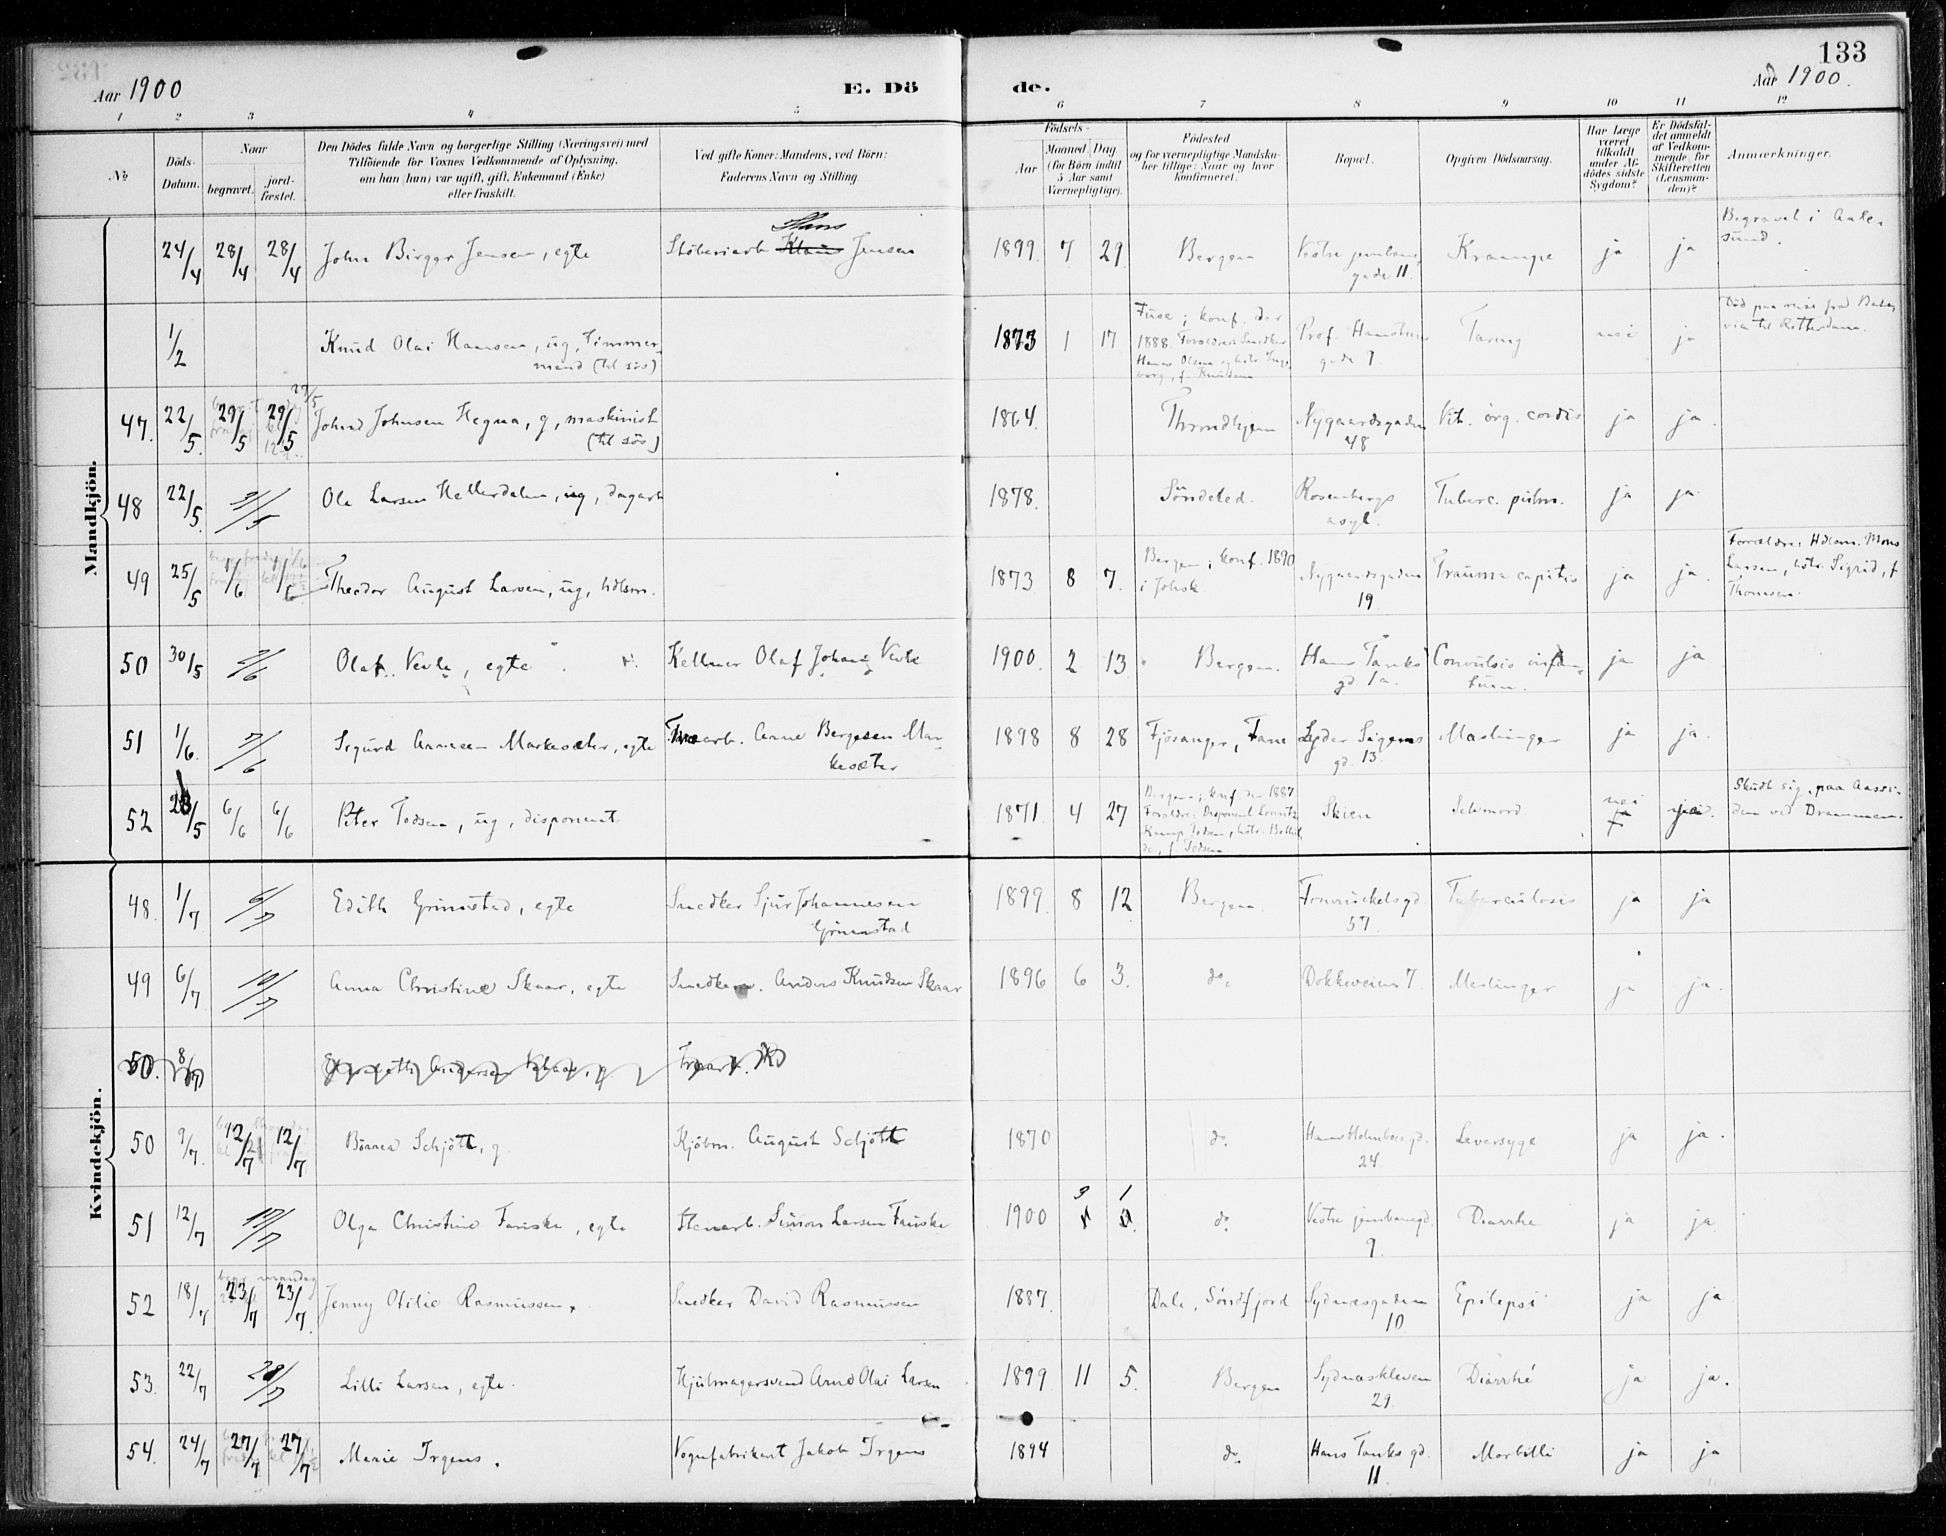 133
Aar 1900
E. Dö
de.
Aar 1900.
1 2 3 4 5 6 7 8 9 10 11 12
No
Döds-Datum.
Naar
begravet.
jord-fæstet.
Den Dödes fulde Navn og borgerlige Stilling (Næringsvei) med
Tilföiende for Voxnes Vedkommende af Oplysning,
om han (hun) var ugift, gift, Enkemand (Enke)
eller fraskilt.
Ved gifte Koner: Mandens, ved Börn:
Faderens Navn og Stilling.
Födsels-
Aar
Maaned. Dag.
(for Börn indtil
5 Aar samt
Værnepligtige).
Födested
og for værnepligtige Mandsku-
ber tillige: Naar og hvor
konfirmeret.
Bopæl.
Opgiven Dödsaarsag.
Har Læge
været
tilkaldt
under Af-
dödes sidste
Sygdom?
Er Dödsfal-
det anmeldt
af Vedkom-
mende for
Skifteretten
(Lensman-
den)?
Anmærkninger.
Mandkjön.
24/4 28/4 28/4 John Birger Jensen, egte Støberiarb. Hans Jensen 1899. 7 29. Bergen Vestre jernbane-gade 11 Krampe ja ja Begravet i Aalesund.
1/2 Knud Olai Hansen, ug, Tømmermand (til søs) 1873 1 17 Fuse; konf. der 1888. Forældre: Snedker Hans Olsen og hstr. Ingeborg, f. Knudsen Prof. Hansteens gade 7 Tæring nei ja Død paa reise fra Batavia til Rotterdam.
47. 22/5. 29/5 29/5 Johnsen Hegna, g, maskinist (til søs) 1864. Throndhjem Nygaardsgaden 48 Vit. org. cordis ja ja.
48 22/5. Ole Larsen Hellerdalen, ug, dagarb 1878. Søndeled. Rosenbergs asyl. Tuberc. pulm. ja ja
49 25/5 1/6 1/6 Theodor August Larsen, ug, hdlsm. 1873 8 7. Bergen; konf. 1890 i Johsk. Nygaardsgaden 19 Trauma capitis ja ja. Forældre: Hdlsm. Mons Larsen, hstr. Sigrid, f. Thomsen.
50 30/5 2/6 Olaf Vevle, egte Kellner Olaf Johan Vevle 1900. 2 13 Bergen. Hans Tanks gd 1a. Convulsio infantum. ja ja
51 1/6. 7/6 Sigurd Arnesen Markesæter, egte arb. Arne Bergesen Markesæter 1898 8 28 Fjøsanger, Fane Lyder Sagens gd. 13. Meslinger ja ja.
52 28/5 6/6 6/6 Peter Todsen, ug, disponent 1871. 4 27 Bergen; konf der 1887. Forældre: Disponent Todsen, hstr. f. Todsen Skien Selvmord. nei Skudt sig, paa Aassiden ved Drammen.
Kvindekjön.
48. 1/7 6/7 Edith Grimstad, egte Snedker Sjur Johannesen Grimstad 1899. 8 12 Bergen. Fosvinckelsgd. 57 Tuberculosis ja ja
49 6/7 10/7 Anna Christine Skaar, egte Snedker. Anders Knudsen Skaar 1896 6 3. do. Dokkeveien 7 Meslinger ja ja.
50. 8/7
50 9/7. 12/7 12/7 Schjøtt, g. Kjøbm. August Schjøtt 1870 do. Hans Holmboes gd. 24 Leversyge ja ja.
51 12/7 17/7 Olga Christine Fauske, egte Stenarb. Simon Larsen Fauske 1900 3 1 do. Vestre jernbanegd. 9. Diarrhe ja ja
52 18/7 23/7 23/7. Jenny Otilie Rasmussen. Snedker David Rasmussen 1887. Dale, Søndfjord Sydnæsgaden 10 Epilepsi ja ja
53. 22/7 28/7 Lilli Larsen, egte. Hjulmagersvend Arnd Olai Larsen 1899 11 5. Bergen Sydnæskleven 29. Diarrhé ja ja.
54. 24/7 27/7 27/7 Marie Irgens. Vognfabrikant Jakob Irgens 1894 do. Hans Tanks gd. 11. Morbilli ja ja